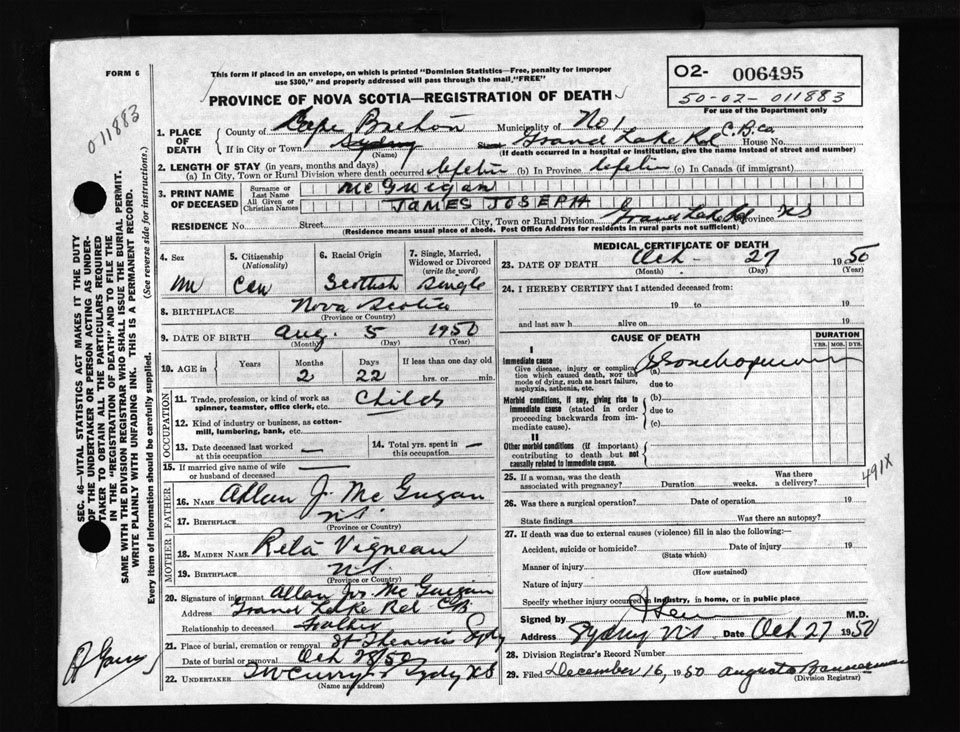 FORM 6
This form if placed in an envelope, on which is printed "Dominion Statistics—Free, penalty for improper
use $300," and properly addressed will pass through the mail, "FREE"
O2- 006495
50-02-011883
For use of the Department only
PROVINCE OF NOVA SCOTIA—REGISTRATION OF DEATH
011883
1. PLACE OF DEATH
County of Cape Breton Municipality of No 1 C.B.Co.
If in City or Town Sydney Street Grand Lake Rd House No.
(Name) (If death occurred in a hospital or institution, give the name instead of street and number)
2. LENGTH OF STAY (in years, months and days)
(a) In City, Town or Rural Division where death occurred lifetime (b) In Province lifetime (c) In Canada (if immigrant)
3. PRINT NAME OF DECEASED
Surname or Last Name McGuigan
All Given or Christian Names JAMES JOSEPH
RESIDENCE No. Street City, Town or Rural Division Grand Lake Rd Province NS
(Residence means usual place of abode. Post Office Address for residents in rural parts not sufficient)
4. Sex M
5. Citizenship (Nationality) Can
6. Racial Origin Scottish
7. Single, Married, Widowed or Divorced (write the word) Single
8. BIRTHPLACE Nova Scotia
(Province or Country)
9. DATE OF BIRTH Aug. 5 1950
(Month) (Day) (Year)
10. AGE in Years Months 2 Days 22 If less than one day old hrs. or min.
OCCUPATION
11. Trade, profession, or kind of work as spinner, teamster, office clerk, etc. Child
12. Kind of industry or business, as cotton-mill, lumbering, bank, etc.
13. Date deceased last worked at this occupation —
14. Total yrs. spent in this occupation —
15. If married give name of wife or husband of deceased —
FATHER
16. NAME Allan J. McGuigan
17. BIRTHPLACE NS.
(Province or Country)
MOTHER
18. MAIDEN NAME Rita Vigneau
19. BIRTHPLACE NS.
(Province or Country)
20. Signature of informant Allan Jr. McGuigan
Address Grand Lake Rd CB
Relationship to deceased Father
21. Place of burial, cremation or removal Sydy
Date of burial or removal Oct 28/50
22. UNDERTAKER TW Curry Sydy NS
(Name and address)
MEDICAL CERTIFICATE OF DEATH
23. DATE OF DEATH Oct. 27 1950
(Month) (Day) (Year)
24. I HEREBY CERTIFY that I attended deceased from:
19 to 19
and last saw h alive on 19
CAUSE OF DEATH
DURATION
YRS. MOS. DYS.
I
Immediate cause
Give disease, injury or complication which caused death, NOT the mode of dying, such as heart failure, asphyxia, asthenia, etc.
(a)
due to
Morbid conditions, if any, giving rise to immediate cause (stated in order proceeding backwards from immediate cause).
(b)
due to
(c)
II
Other morbid conditions (if important) contributing to death but not causally related to immediate cause.
491X
25. If a woman, was the death associated with pregnancy? Duration weeks. Was there a delivery?
26. Was there a surgical operation? Date of operation 19
State findings Was there an autopsy?
27. If death was due to external causes (violence) fill in also the following:—
Accident, suicide or homicide? Date of injury 19
(State which)
Manner of injury
(How sustained)
Nature of injury
Specify whether injury occurred in industry, in home, or in public place
Signed by M.D.
Address Sydney NS Date Oct 27 1950
28. Division Registrar's Record Number
29. Filed December 16, 1950 Augusta Bannerman
(Division Registrar)
SEC. 46—VITAL STATISTICS ACT MAKES IT THE DUTY
OF THE UNDERTAKER OR PERSON ACTING AS UNDERTAKER TO OBTAIN ALL THE PARTICULARS REQUIRED
IN THE "REGISTRATION OF DEATH" AND TO FILE THE
SAME WITH THE DIVISION REGISTRAR WHO SHALL ISSUE THE BURIAL PERMIT.
WRITE PLAINLY WITH UNFADING INK. THIS IS A PERMANENT RECORD.
Every item of information should be carefully supplied. (See reverse side for instructions.)